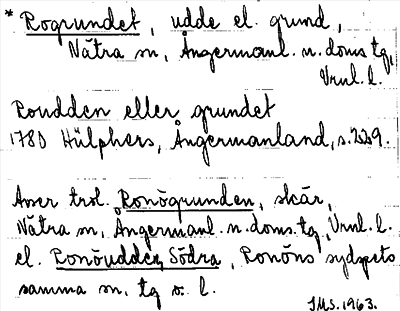 * Rogrundet, udde el. grund,
Nätra sn, Ångermanl. n. doms. tg,
Vrnl. l.
Roudden eller grundet
1780 Hülphers, Ångermanland, s. 229.
Avser trol. Ronögrunden, skär,
Nätra sn, Ångermanl. n. doms. tg, Vrnl. l.
el. Ronöudden Södra, Ronöns sydspets
samma sn, tg o. l.
IMS. 1963.